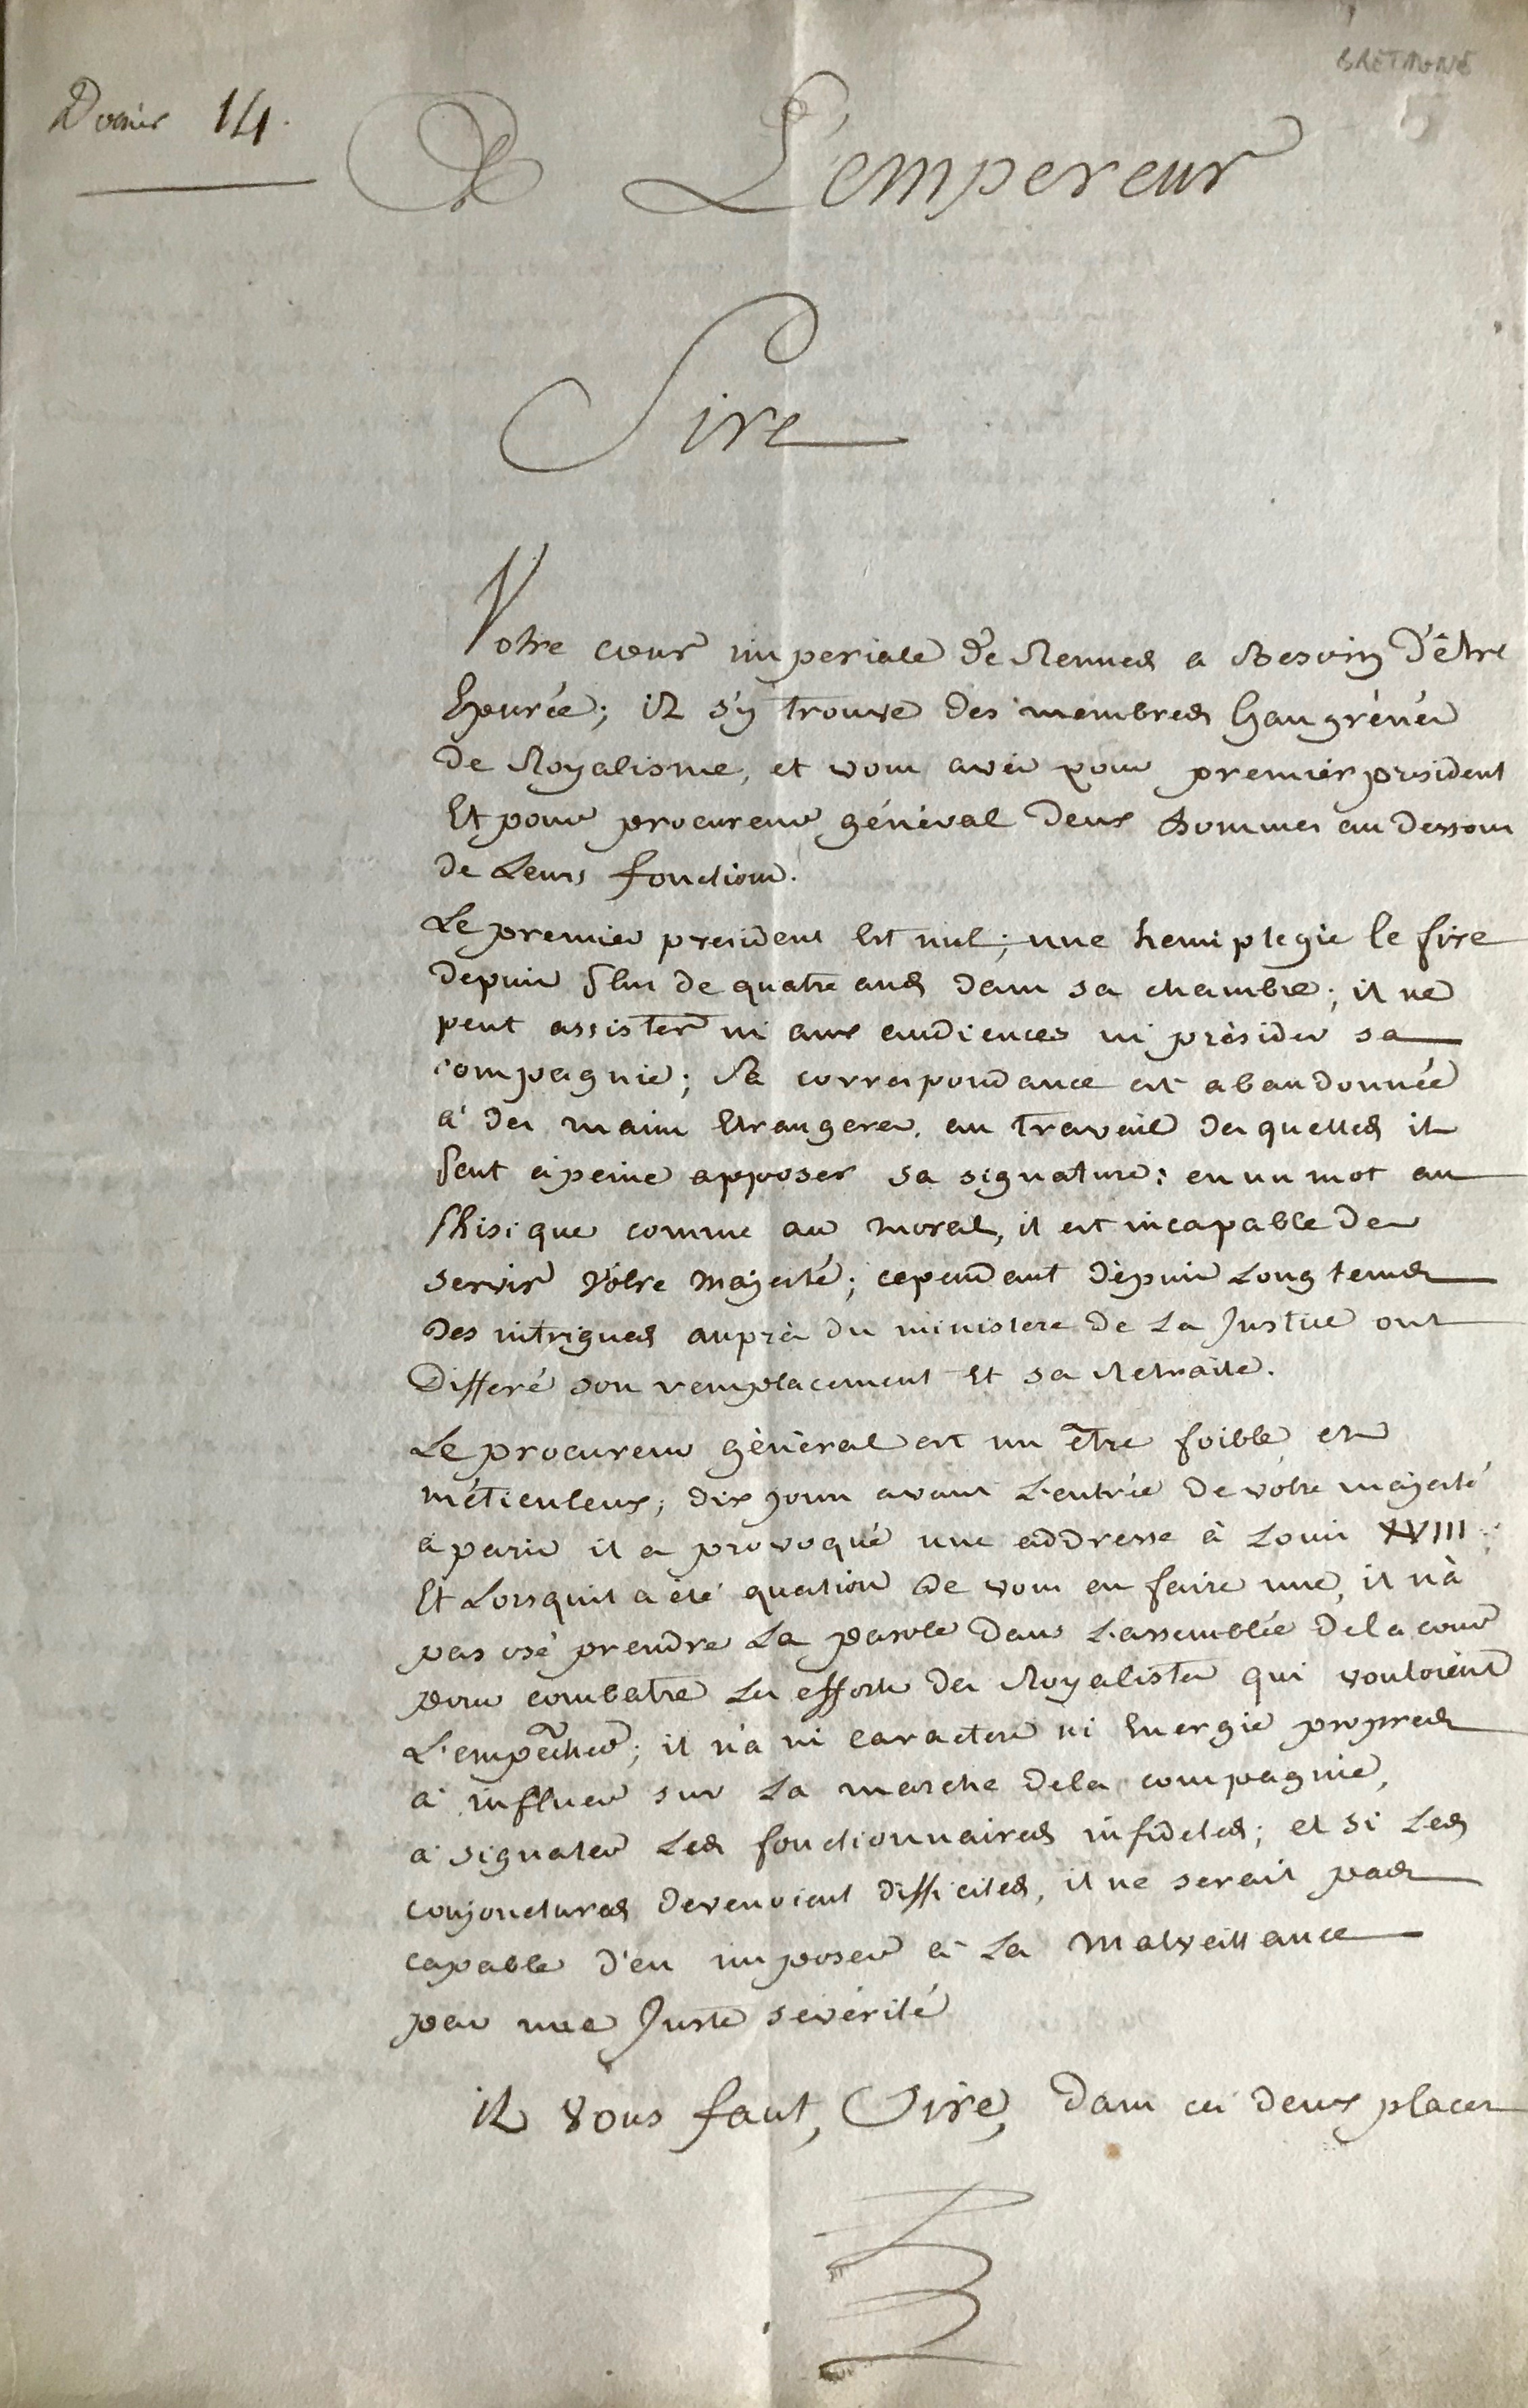 BRETAGNE
Dossier 14.
A L'empereur
Sire
Votre cour imperiale de Rennes a Besoin d'être
Epurée; il s'y trouve des membres Gangrénés
de Royalisme, et vous avés pour premier président
Et pour procureur général deux hommes au dessous
de Leurs fonctions.
Le premier president est nul; une hemiplegie le fixe
depuis plus de quatre ans dans sa chambre; il ne
peut assister ni aux audiences ni présider sa
compagnie; Sa correspondance est abandonnée
à des mains Etrangeres, au travail desquelles il
peut à peine apposer sa signature: en un mot au
phisique comme au moral, il est incapable de
servir Vôtre Majesté; cependant dépuis Long tems
des intrigues auprès du ministere de La Justice ont
Differé son remplacement Et sa Retraite.
Le procureur général est un être foible et
méticuleux; dix jours avant L'entrée de vôtre majesté
a paris il a provoqué une addresse à Louis XVIII.
Et Lorsquil a été question de vous en faire une, il n'à
pas osé prendre La parole dans L'assemblée dela cour
pour combatre Les efforts des Royalistes qui vouloient
L'empêcher; il n'a ni caractere ni Energie propres
à influer sur La marche dela compagnie,
a signaler Les fonctionnaires infideles; et si Les
conjonctures devenoient difficiles, il ne serait pas
capable d'en imposer à La Malveillance
par une Juste sévérité
il vous faut, Sire, dans ces deux places